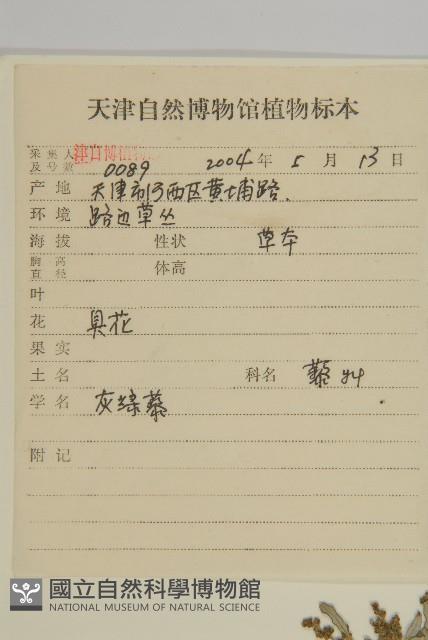 天津自然博物馆植物标本
采集人及号数 津自博植物 0089 2004年 5月 13日
产地 天津市河西区黄埔路、
环境 路边草丛
海拔 性状 草本
胸高直径 体高
叶
花 具花
果实
土名 科名 藜科
学名 灰绿藜
附记
國立自然科學博物館
NATIONAL MUSEUM OF NATURAL SCIENCE